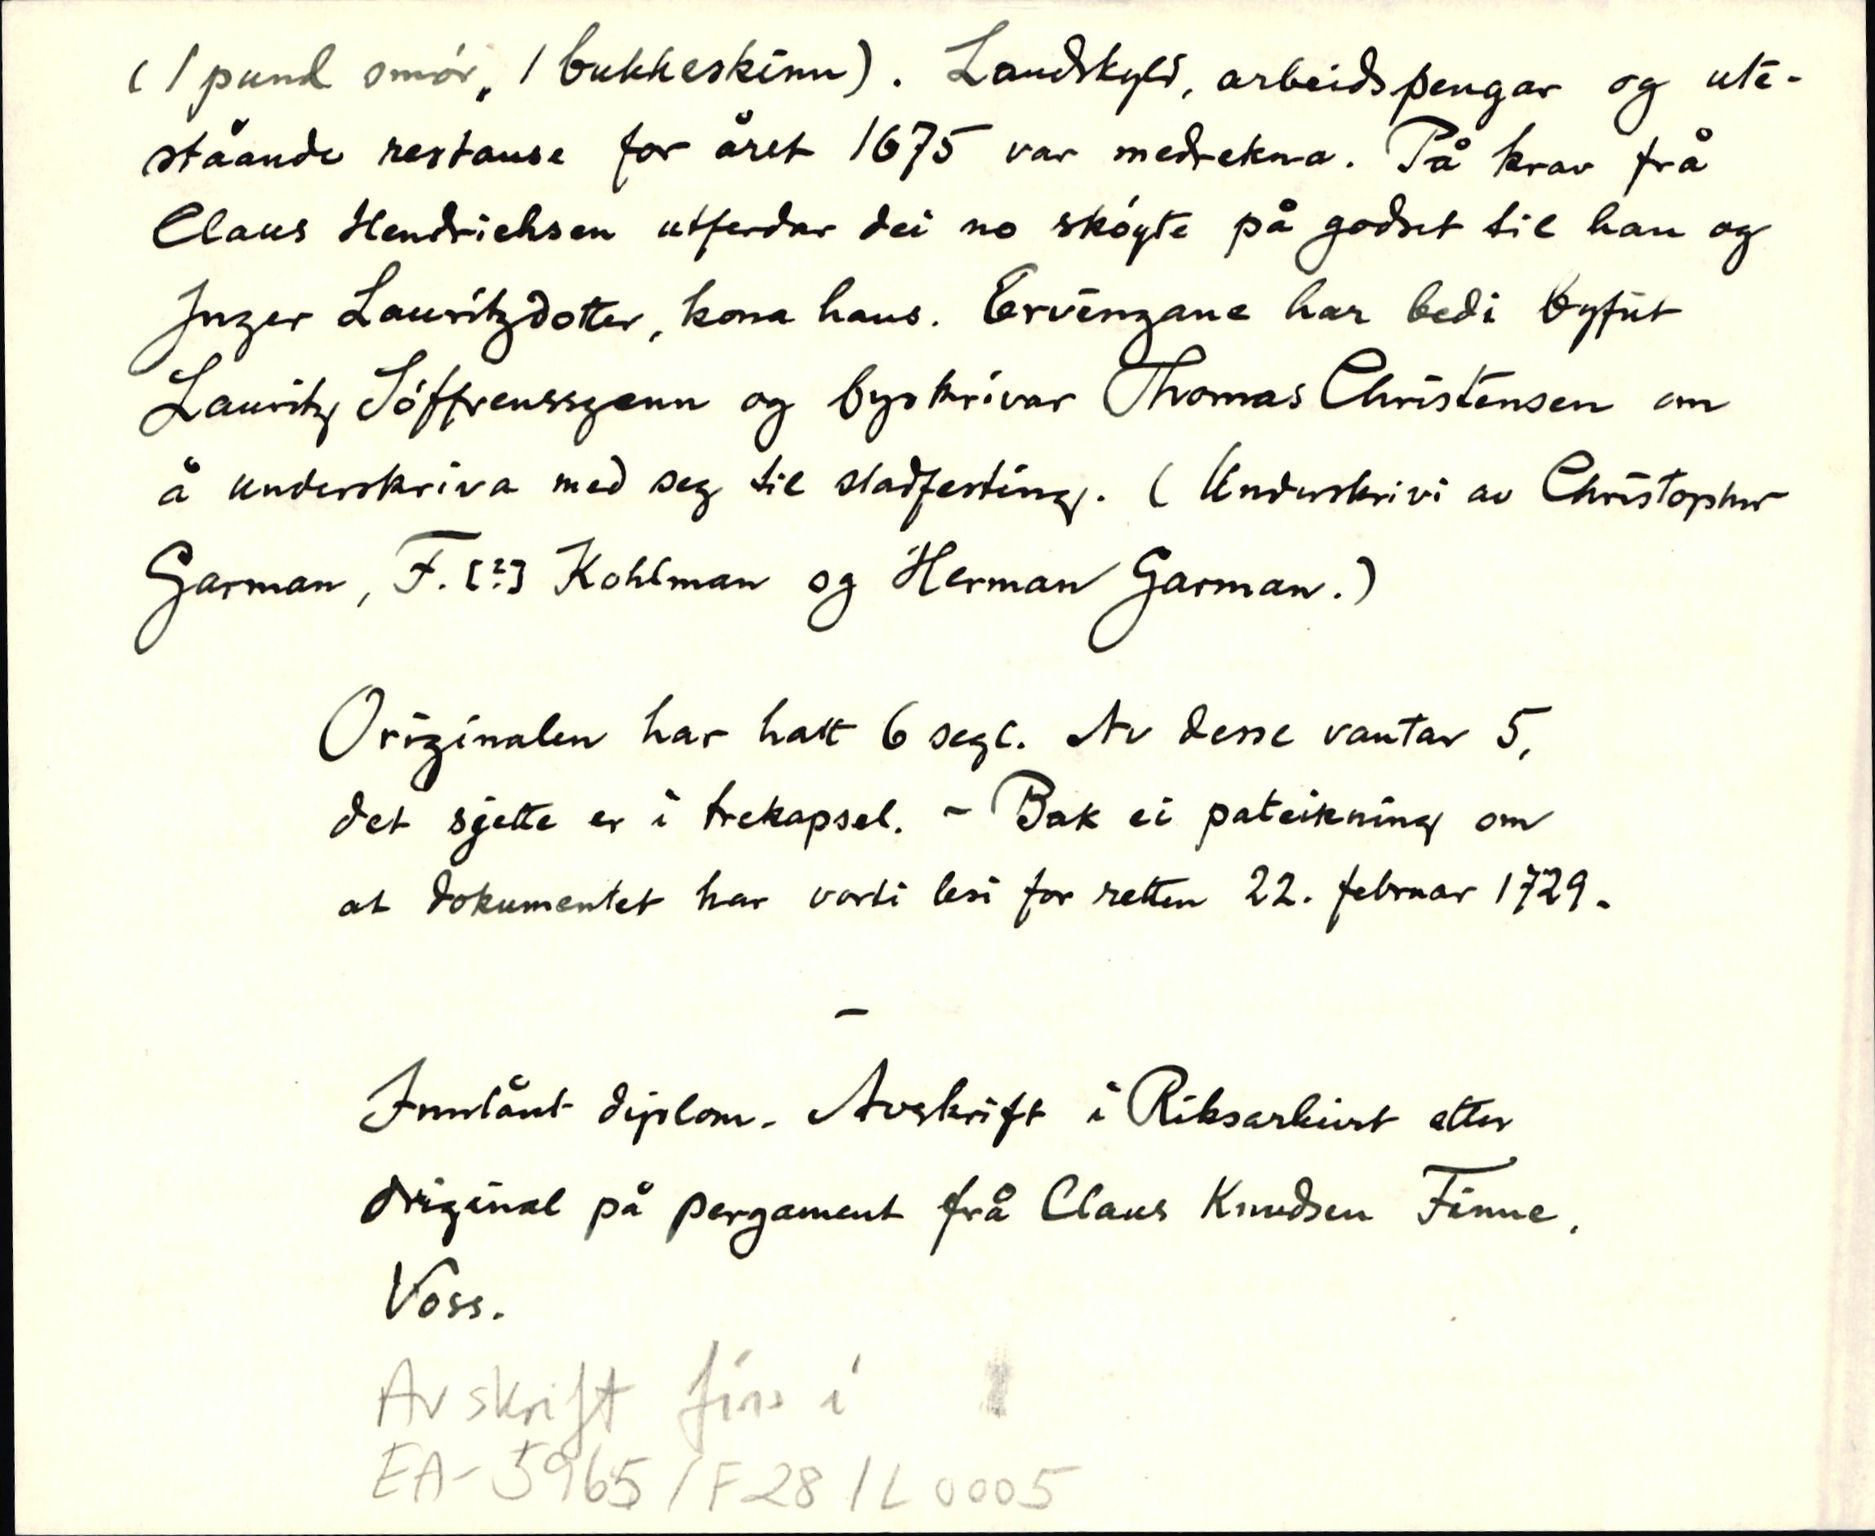 (1 pund smör, 1 bukkeskinn). Landskyld, arbeidspengar og ute-
ståande restanse for året 1675 var medrekna. På krav frå
Claus Hendrichsen utferdar dei no sköyte på godset til han og
Inger Lauritzdotter, kona hans. Ervingane har bedi byfut
Lauritz Söffrenssgenn og byskrivar Thomas Christensen om
å underskriva med seg til stadfesting. (Underskrivi av Christopher
Garman, F. [?] Kohlman og Herman Garman.)
Originalen har hatt 6 segl. Av desse vantar 5,
det sjette er i trekapsel. - Bak ei pateikning om
at dokumentet har vorti lesi for retten 22. februar 1729.
-
Innlånt diplom. Avskrift i Riksarkivet etter
original på pergament frå Claus Knudsen Finne,
Voss.
Avskrift fins i
EA-5965/F28/L0005